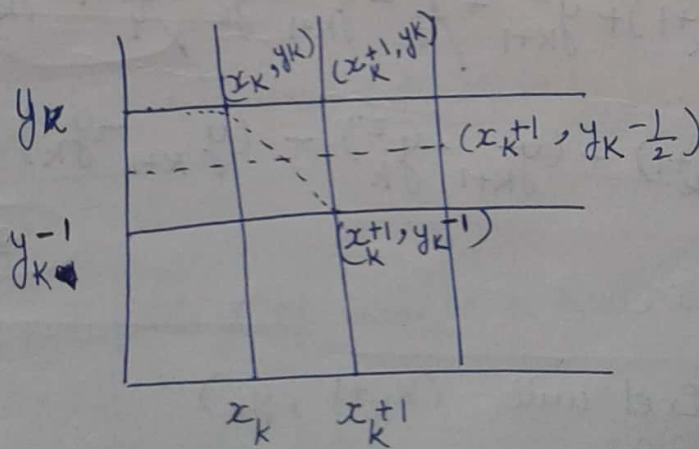 (x_k, y_k)
(x_k+1, y_k)
y_k
(x_k+1, y_k-1/2)
y_k-1
(x_k+1, y_k-1)
x_k
x_k+1